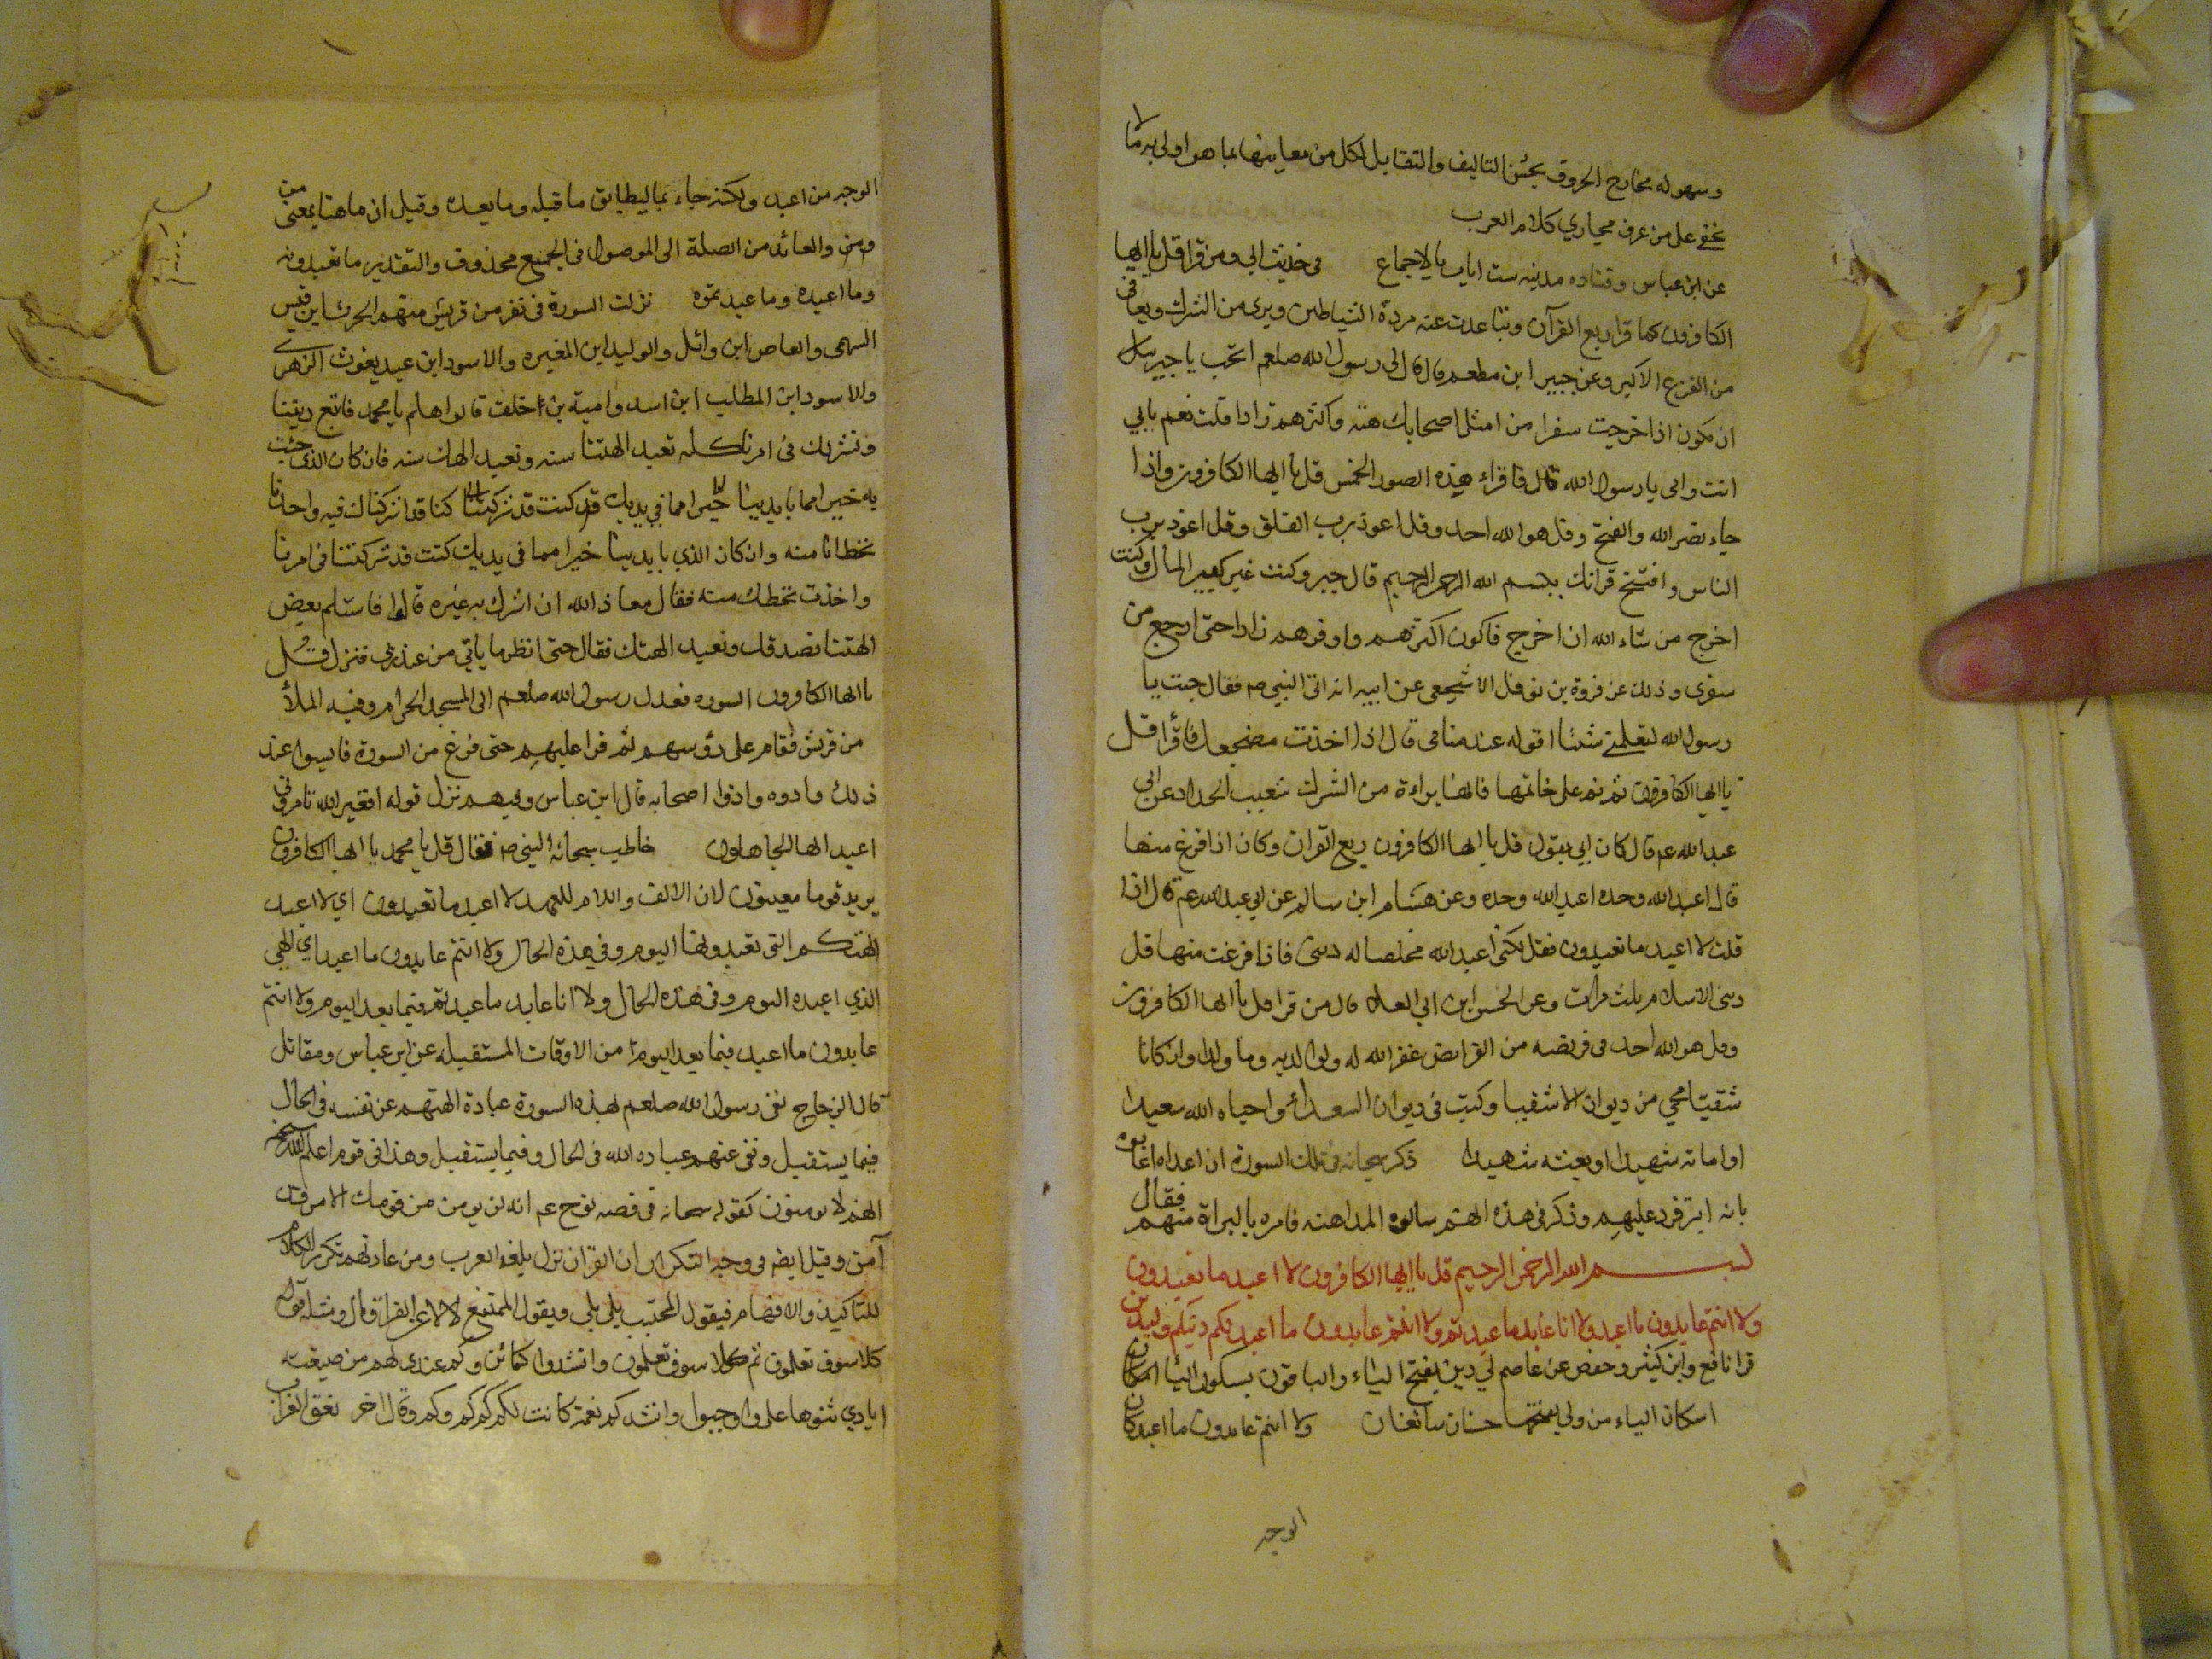 وسهوله مخارج الحروف بحسن التاليف والتقابل لكل من معانيها بما هو اولى به ما لا
يخفى على من عرف مجاري كلام العرب
عن ابن عباس وقتاده مدنيه ست ايات بالاجماع في حديث ابي ومن قرا قل يا ايها
الكافرون كما قرا ربع القرآن وتباعدت عنه مردة الشياطين وبرى من الشرك ويعافى
من الفزع الاكبر وعن جبير ابن مطعم قال قال لي رسول الله صلعم اتحب يا جبير
ان تكون اذا خرجت سفرا من امثل اصحابك هيئه واكثرهم زادا قلت نعم بابي
انت وامي يا رسول الله قال فاقراء هذه الصور الخمس قل يا ايها الكافرون واذا
جاء نصر الله والفتح وقل هو الله احد وقل اعوذ برب الفلق وقل اعوذ برب
الناس وافتتح قرانك ببسم الله الرحمن الرحيم قال جبير وكنت غير كثير المال وكنت
اخرج من شاء الله ان اخرج فاكون اكثرهم واوفرهم زادا حتى ارجع من
سفرى وذلك عن فروة بن نوفل الاشجعي عن ابيه انه اتى النبي ص فقال جيت يا
رسول الله لتعلمني شيئا اقوله عند منامي قال اذا اخذت مضجعك فاقرأ قل
يا ايها الكافرون ثم نم على خاتمها فانها براءة من الشرك شعيب الحداد عن ابي
عبد الله عم قال كان ابي يقول قل يا ايها الكافرون ربع القران وكان اذا فرغ منها
قال اعبد الله وحده اعبد الله وحده وعن هشام ابن سالم عن ابي عبد الله عم قال اذا
قلت لا اعبد ما تعبدون فقل لكني اعبد الله مخلصا له ديني فاذا فرغت منها قل
ديني الاسلام ثلث مرات وعن الحسين ابن ابي العلا قال من قرا قل يا ايها الكافرون
وقل هو الله احد في فريضه من الفرايض غفر الله له ولوالديه وما ولدا وان كانا
شقيا محي من ديوان الاشقيا وكتب في ديوان السعداء واحياه الله سعيدا
واماته شهيدا وبعثه شهيدا ذكر سبحانه في تلك السورة ان اعداه عابوه
بانه ابتر فرد عليهم وذكر في هذه انهم سالوه المداهنه فامره بالبراة منهم فقال
بسم الله الرحمن الرحيم قل يا ايها الكافرون لا اعبد ما تعبدون
ولا انتم عابدون ما اعبد ولا انا عابد ما عبدتم ولا انتم عابدون ما اعبد لكم دينكم ولي دين
قرا نافع وابن كثير وحفص عن عاصم لي دين بفتح الياء والباقون بسكون الياء
اسكان الياء من ولي وفتحها حسنان سائغان ولا انتم عابدون ما اعبد كان
الوجه
الوجه من اعبد ولكنه جاء بما ليطابق ما قبله وما بعده وقيل ان ما هنا بمعنى من
ومن والعائد من الصلة الى الموصول في الجميع محذوف والتقدير ما تعبدونه
وما اعبده وما عبدتموه نزلت السورة في نفر من قريش منهم الحرث ابن قيس
السهمى والعاص ابن وائل والوليد ابن المغيره والاسود ابن عبد يغوث الزهرى
والاسود ابن المطلب ابن اسد وامية بن خلف قالوا هلم يا محمد فاتبع ديننا
ونشركك في امرنا كله تعبد الهتنا سنه ونعبد الهك سنه فان كان الذي جئت
به خيرا مما بايدينا كنا قد شركناك فيه واخذنا
بحظنا منه وان كان الذي بايدينا خيرا مما في يديك كنت قد شركتنا في امرنا
واخذت بحظك منه فقال معاذ الله ان اشرك به غيره قالوا فاستلم بعض
الهتنا نصدقك ونعبد الهك فقال حتى انظر ما ياتي من عند ربي فنزل قل
يا ايها الكافرون السوره فعدل رسول الله صلعم الى المسجد الحرام وفيه الملأ
من قريش فقام على رؤسهم ثم قرا عليهم حتى فرغ من السورة فايسوا عند
ذلك واذوه واذوا اصحابه قال ابن عباس وفيهم نزل قوله افغير الله تامروني
اعبد ايها الجاهلون خاطب سبحانه النبي ص فقال قل يا محمد يا ايها الكافرون
يريد قوما معينون لان الالف واللام للعهد لا اعبد ما تعبدون اي لا اعبد
الهتكم التي تعبدونها اليوم وفي هذه الحال ولا انتم عابدون ما اعبد اي الهي
الذي اعبده اليوم وفي هذه الحال ولا انا عابد ما عبدتم فيما بعد اليوم ولا انتم
عابدون ما اعبد فيما بعد اليوم من الاوقات المستقبله عن ابن عباس ومقاتل
قال الزجاج نفى رسول الله صلعم بهذه السورة عبادة الهتهم عن نفسه في الحال
فيما يستقبل ونفى عنهم عباده الله في الحال وفيما يستقبل وهذا في قوم اعلم الله سبحانه
انهم لا يومنون كقوله سبحانه في قصه نوح عم انه لن يومن من قومك الا من قد
آمن وقيل ايضا في وجه التكرار ان القران نزل بلغة العرب ومن عادتهم تكرير الكلام
للتاكيد والافهام فيقول المجيب بلى بلى ويقول الممتنع لا لا عن الفرا قال ومثله قوله
كلا سوف تعلمون ثم كلا سوف تعلمون وانشدوا كائن وكم عندي لهم من صنيعة
ايادي ثنوها علي واوجبوا وانشد كم نعمة كانت لكم كم كم وكم وقال اخر نغق الغراب